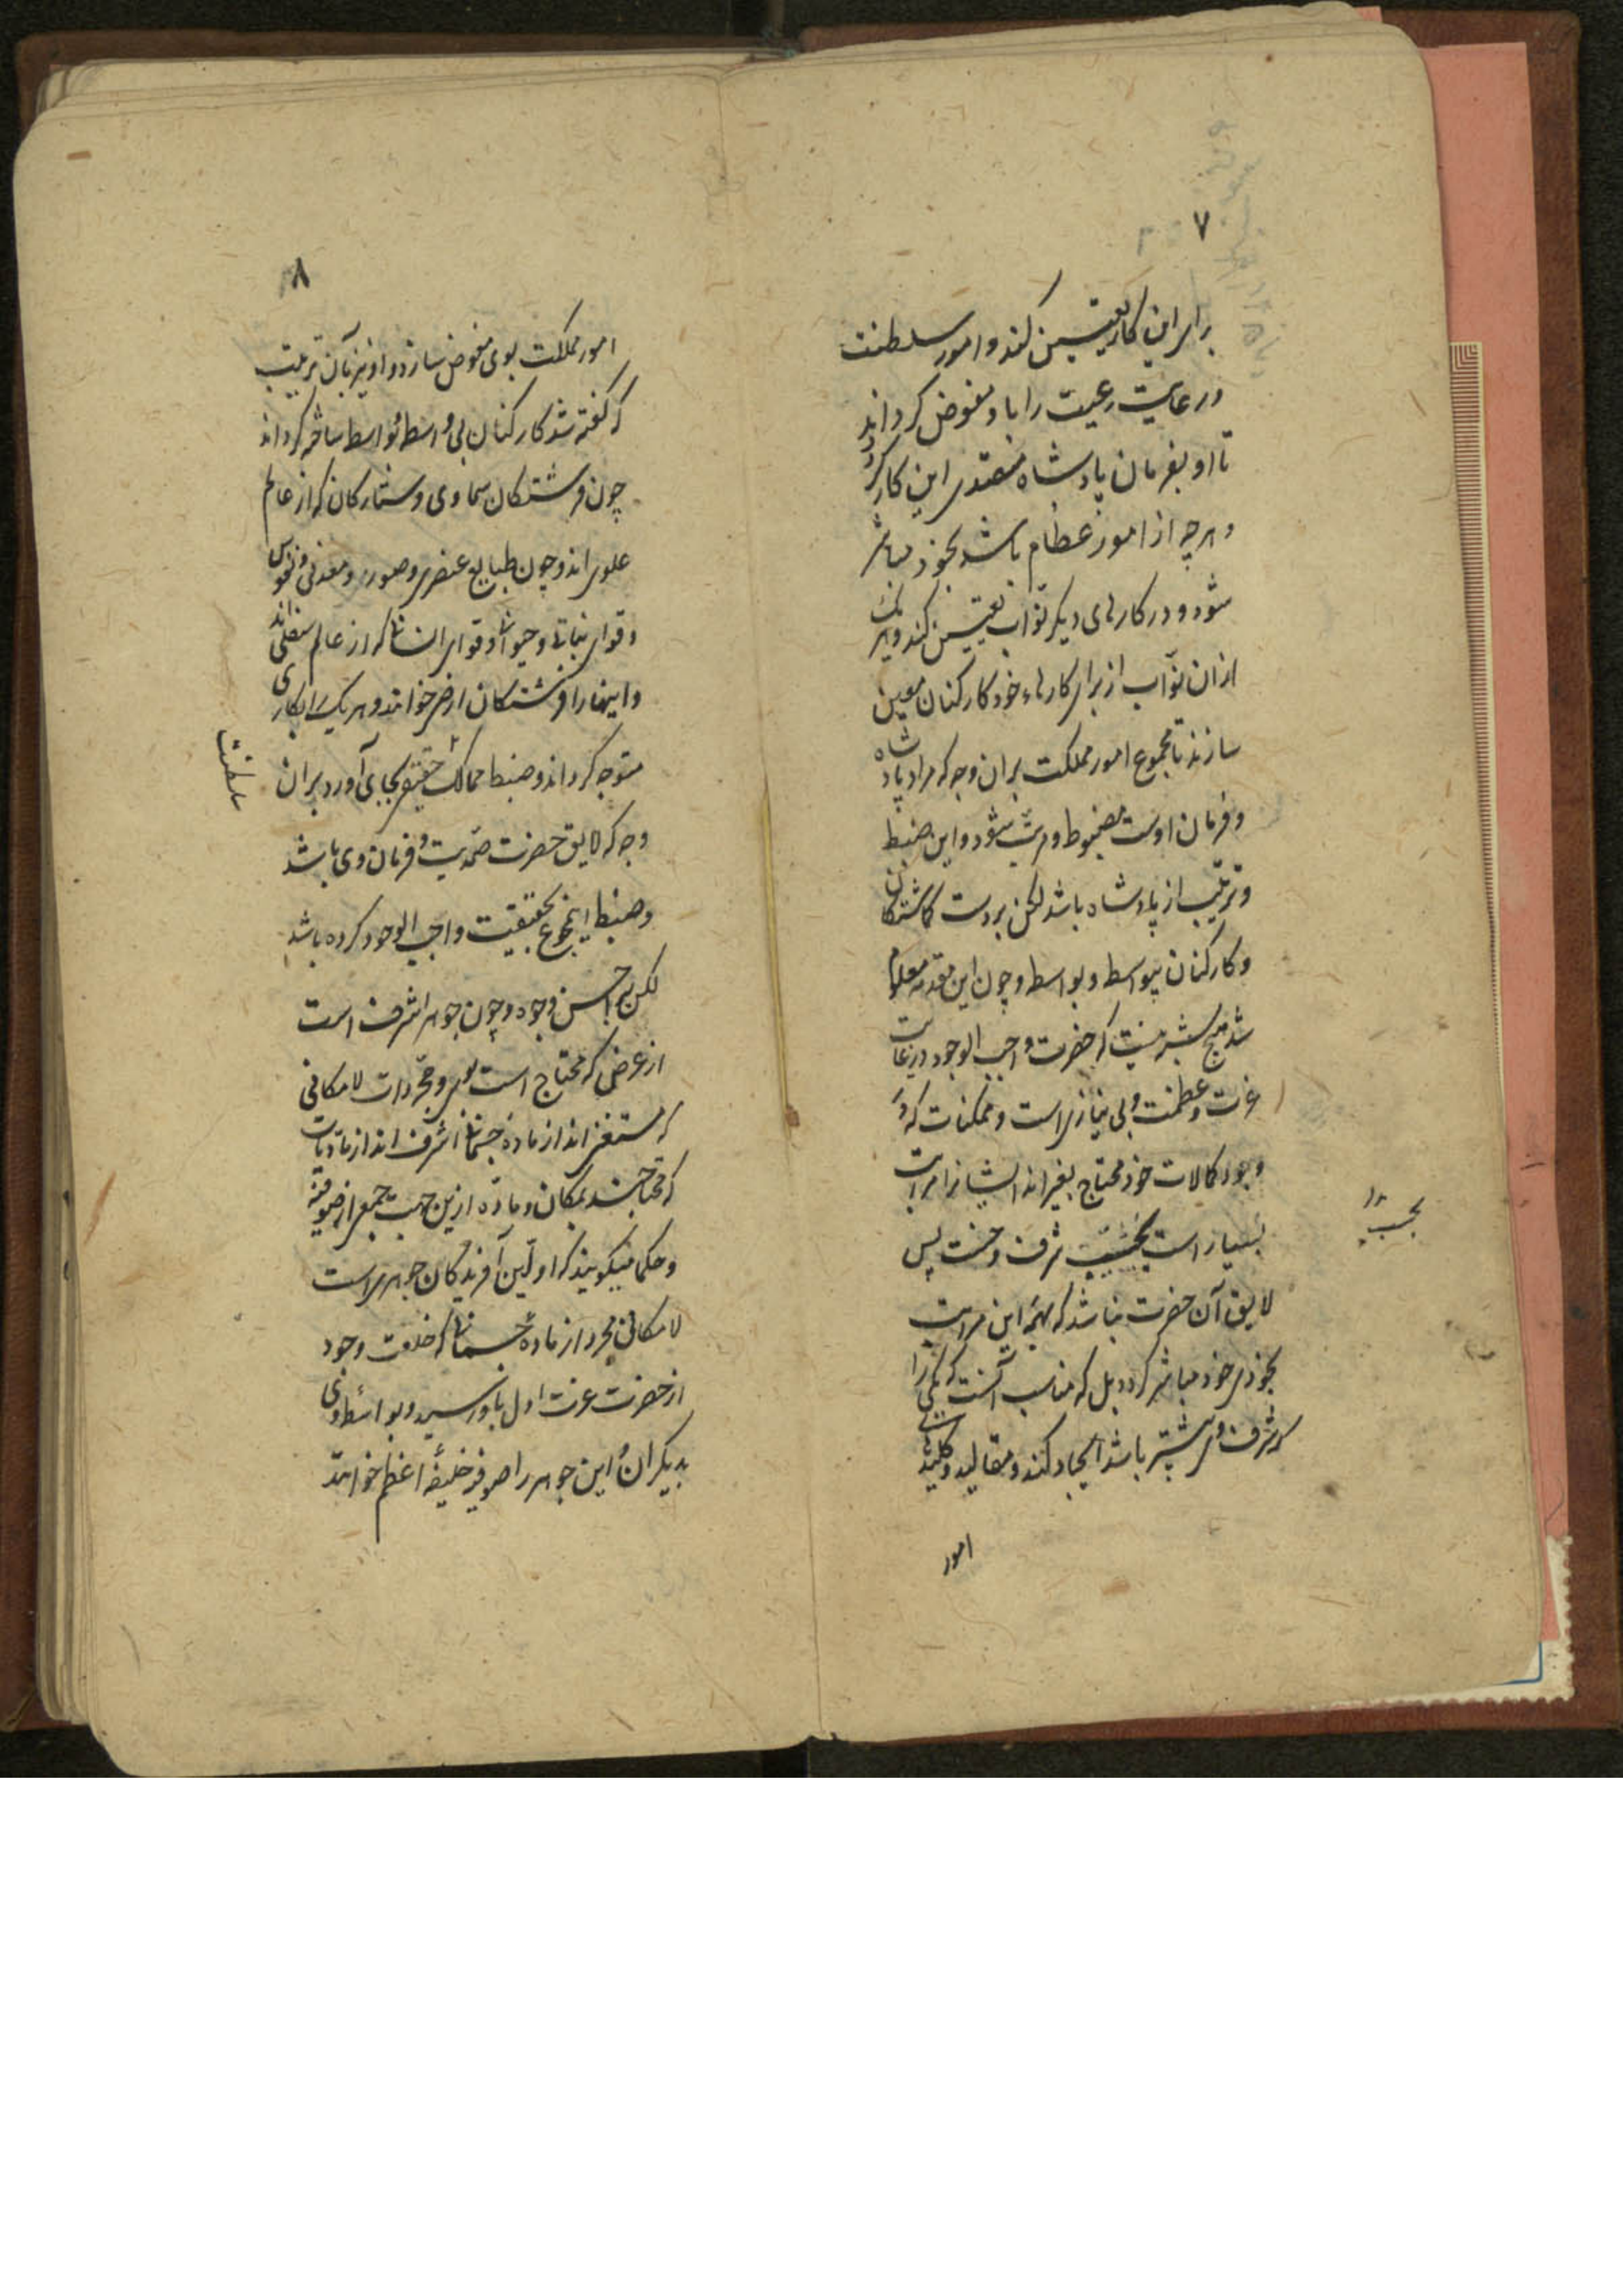 ۷
برای این کار تعیین کند و امور سلطنت
و رعایت رعیت را باو مفوض کرداند
تا او بفرمان پادشاه متصدی این کار کردد
و هرچه از امور عظام باشد بخود مباشر
شود و در کارهای دیکر نوّاب تعیین کند و هریک
ازان نوّاب از برای کارهاء خود کارکنان معین
سازند تا مجموع امور مملکت بران وجه که مراد پادشاه
و فرمان اوست مضبوط و مرتب شود و این ضبط
و ترتیب از پادشاه باشد لکن بردست کماشتکان
و کارکنان بیواسط و بواسط و چون این مقدمه معلوم
شد هیچ شبه نیست که حضرت واجب الوجود در غایت
عزت و عظمت و بی نیازی است و ممکنات که در
وجود و کمالات خود محتاج بغیراند ایشانرا مراتب
بسیار است بحسب شرف و خست پس
بحسب
لایق آن حضرت نباشد که بهمه این مراتب
بخودی خود مباشر کردد بل که مناسب آنست که یکی را
که شرف وی بیشتر باشد ایجاد کند و مقالید و کلیدهای
امور
۸
امور مملکت بوی مفوض سازد و او نیز بآن ترتیب
که کفته شد کارکنان بی واسط و بواسط مباشر کرداند
چون فرشتکان سماوی و ستارکان که از عالم
علوی اند و چون طبایع عنصری و صور و معدنی و نفوس
و قوای نباتی و حیوانی و قوای انسانی که از عالم سفلی اند
و اینها را فرشتکان ارضی خوانند و هر یک را بکاری
متوجه کرداند و ضبط ممالک حقیقی بجای آورد بران
سلطنت
وجه که لایق حضرت صمدیت و فرمان وی باشد
و ضبط این مجموع بحقیقت واجب الوجود کرده باشد
لکن بر احسن وجوه و چون جوهر اشرف است
از عرض که محتاج است بوی و مجردات لامکانی
که مستغنی اند از ماده جسمانی اشرف اند از مادیات
که محتاجند بمکان و ماده ازین جهت جمعی از صوفیه
و حکما میکویند که اولین آفریدکان جوهری است
لامکانی مجرد از ماده جسمانی که خلعت وجود
از حضرت عزت اول باو رسید و بواسطه وی
بدیکران و این جوهر را صوفیه خلیفه اعظم خوانند